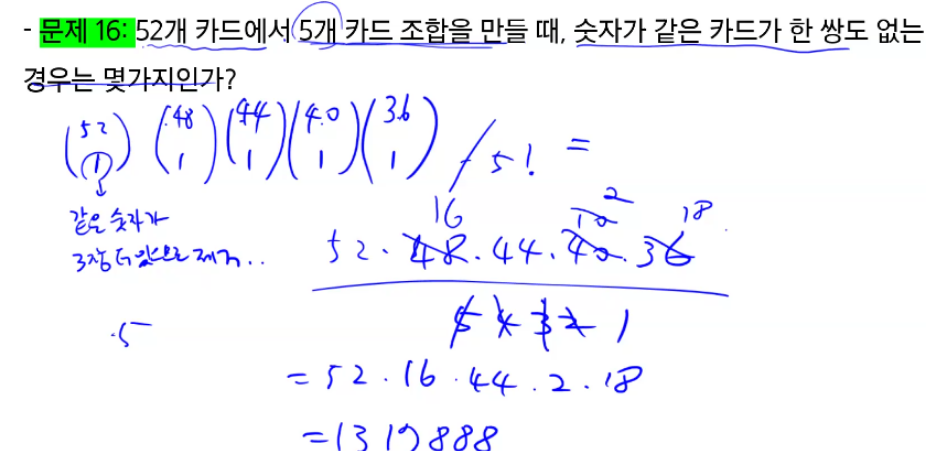 - 문제 16: 52개 카드에서 5개 카드 조합을 만들 때, 숫자가 같은 카드가 한 쌍도 없는
경우는 몇가지인가?
(52 1) (48 1) (44 1) (40 1) (36 1) / 5! =
같은 숫자가
3장 더 있으므로 제거..
16 2 18
52 · 48 · 44 · 40 · 36
10
5 4 3 2 1
·5
= 52 · 16 · 44 · 2 · 18
= 1317888